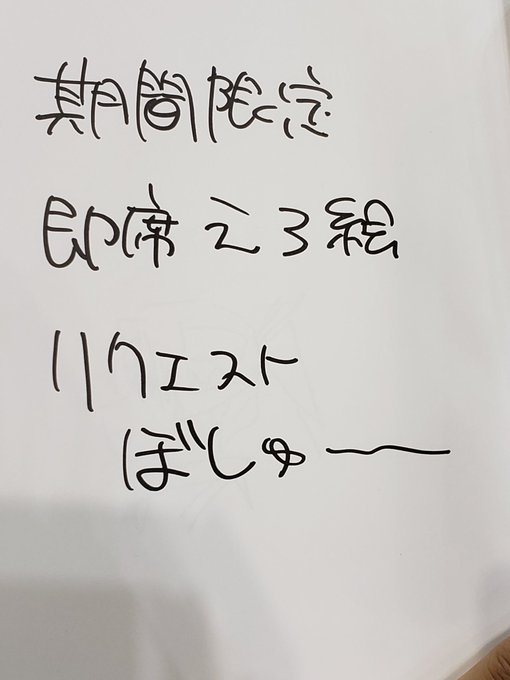 期間限定
即席えろ絵
リクエスト
ぼしゅー